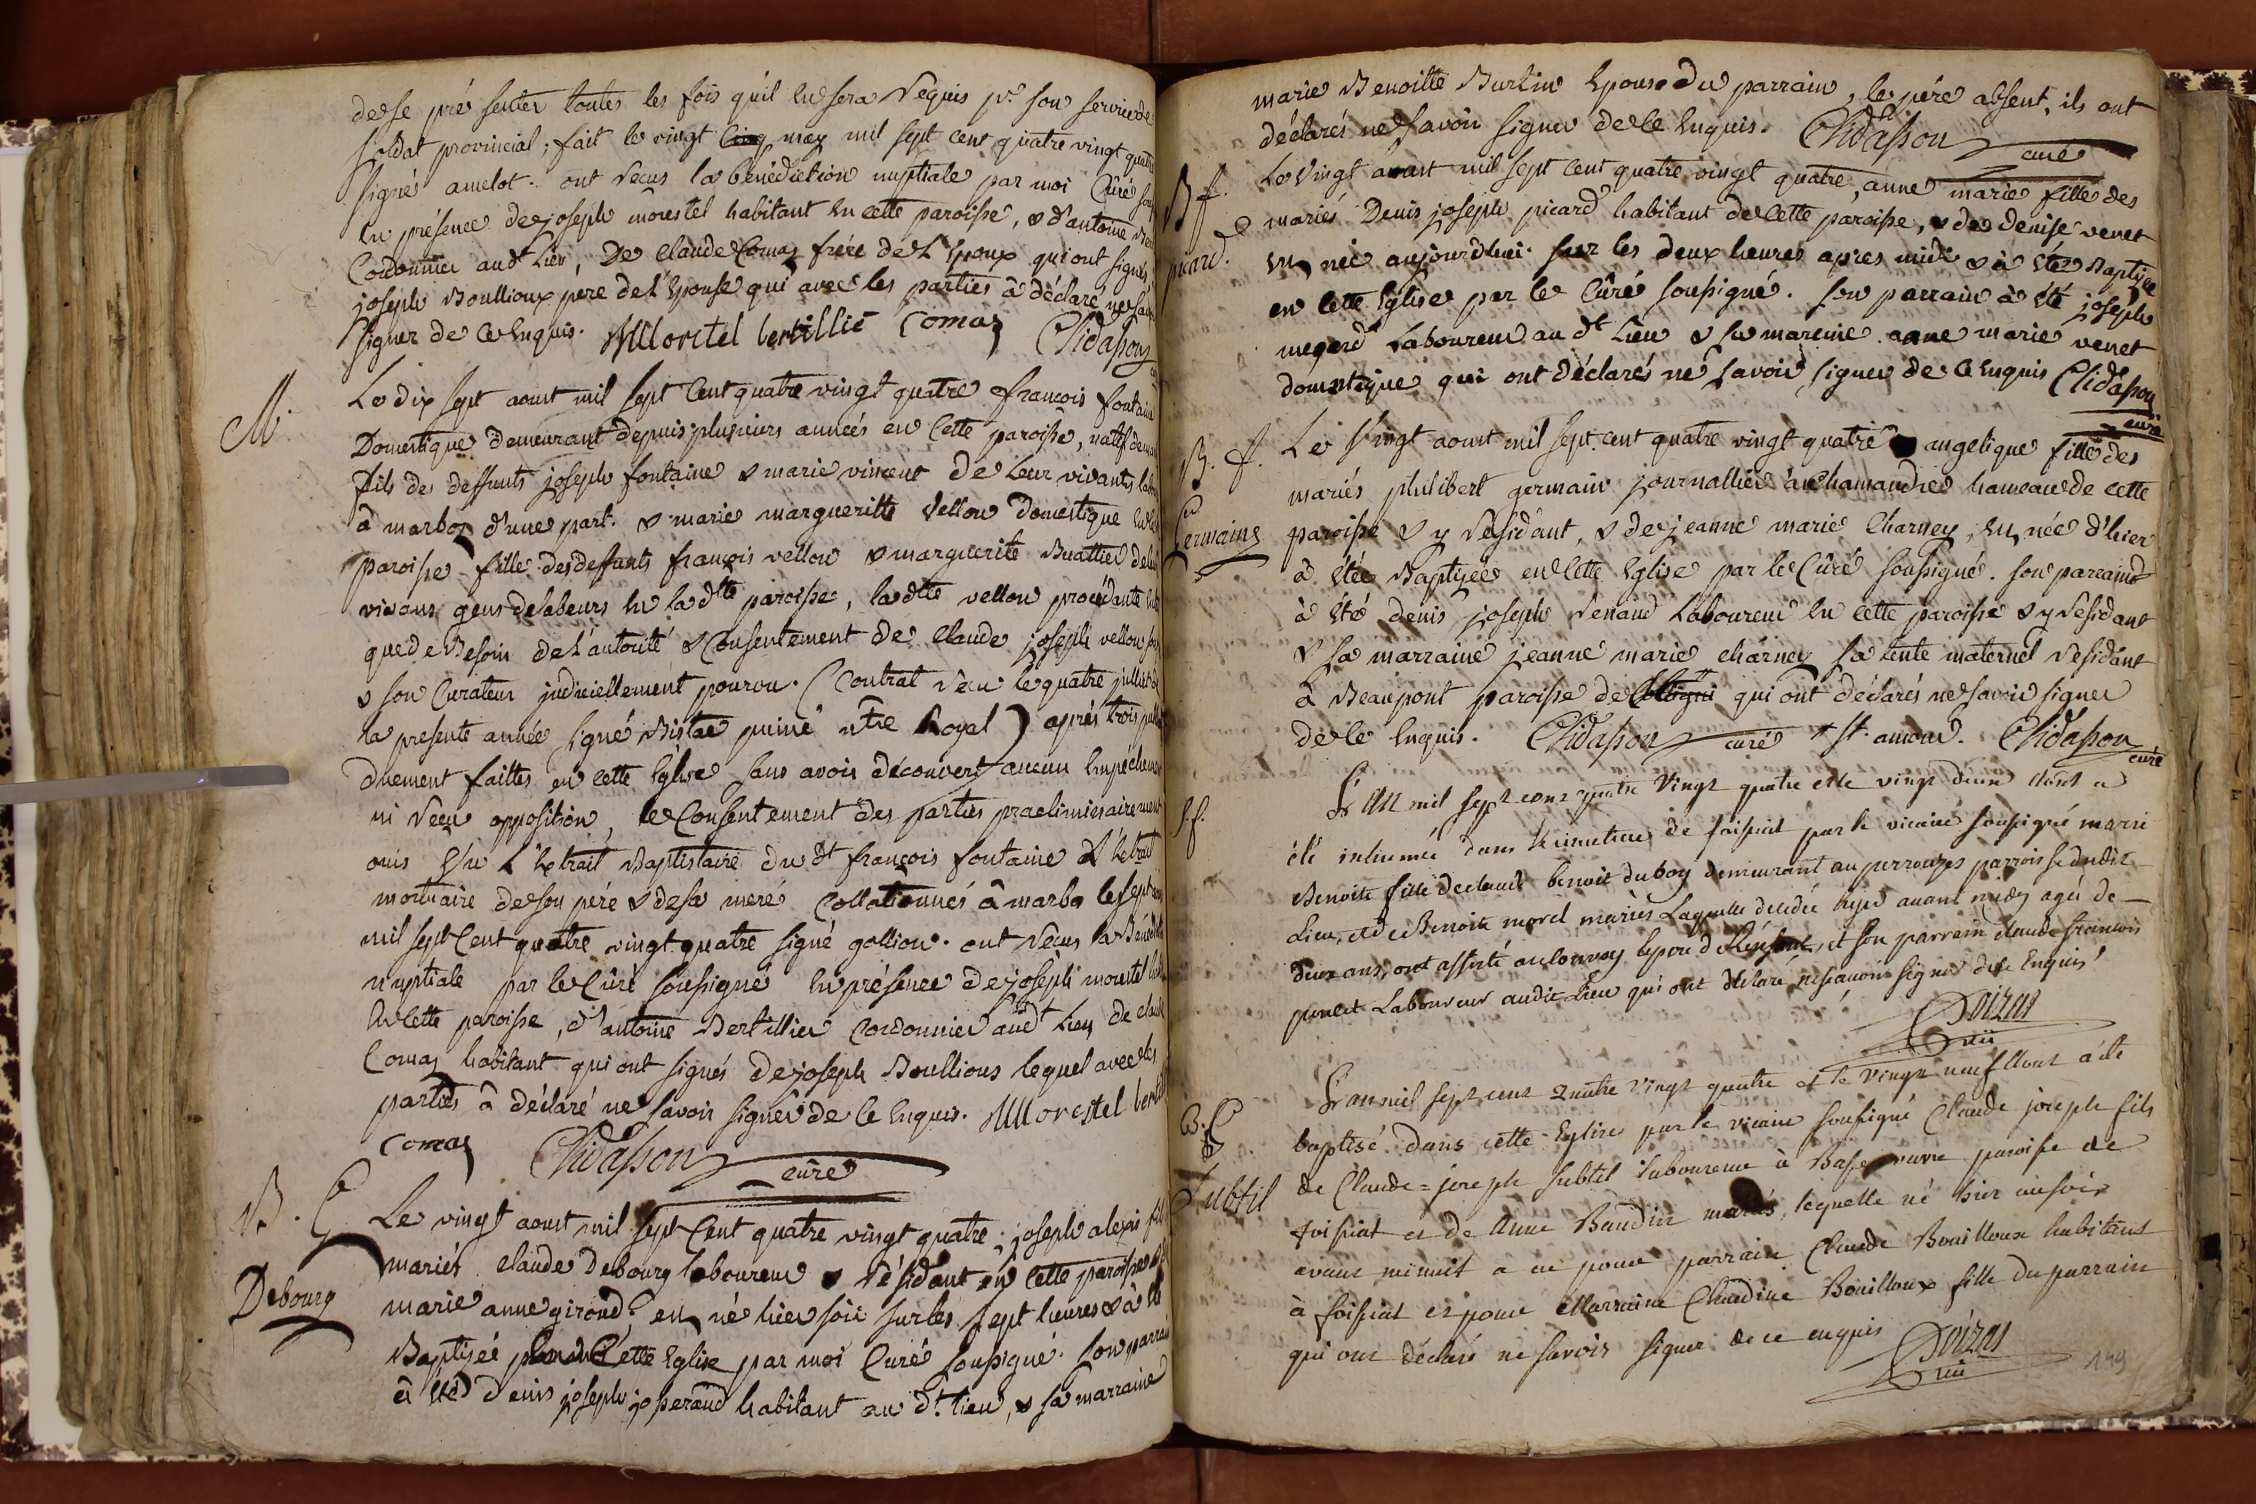 de se pré senter toutes les fois qu'il en sera requis pr. son service de
soldat provincial; fait le vingt cinq may mil sept cent quatre vingt quatre
signé amelot. ont recus la bénédiction nuptiale par moi Curé sous
en présence de joseph morestel habitant en cette paroisse, & d'antoine
Cordonnier audt. Lieu, De Claude Comas frére de L'Epoux qui ont signés,
joseph Boullioux pere de L'Epouse qui avec les parties à déclaré ne sa
signer de ce Enquis. Morestel bertillié Comas Chidasson
M. Le dix sept aoust mil sept Cent quatre vingt quatre françois fontaine
Domestique demeurant depuis plusieurs années en Cette paroisse, natif de mar
fils des deffunts joseph fontaine & marie vincent de Leur vivants labo
à marbos d'une part. & marie margueritte vellon domestique en
paroisse fille des deffunts françois vellon & marguerite Buattier de leur
vivans gens de labeurs en la dtte paroisse, ladtte vellon procédante en
que de Besoin de L'autorité & Consentement de Claude joseph vellon
& son Curateur judiciellement pourvu. (Contrat recu le quatre juillet
la presente année signé Bistac puiné ntre Royal) aprés trois pu
duement faittes en cette Eglise sans avoir découvert aucun Empêchem
ni recu opposition, le Consentement des parties praeliminairement
ouis Vu L'Extrait Baptistaire du dt françois fontaine & L'éxtrait
mortuaire de son pére & de sa meré Collationnés à marbos le sept
mil sept Cent quatre vingt quatre signé gollion. ont recus la Bénéd
nuptiale par le Curé soussigné en présence de joseph morestel
en Cette paroisse, d'antoine Bertillier Cordonnier audt Lieu, de claude
Comas habitant qui ont signés de joseph Boullioux lequel avec les
parties à déclaré ne savoir signer de ce Enquis. Morestel bertil
Comas Chidasson curé
B. G. Le vingt aoust mil sept Cent quatre vingt quatre; joseph alexis fil
mariés claude Debourg laboureur & résidant en cette paroisse &
Debourg marie anne giroud: en né hier soir sur les sept heures & à été
Baptisé Cette Eglise par moi Curé soussigné. son parrain
à été denis joseph josserand habitant au dt. lieu, & sa marraine
marie Benoitte Burtin Epouse du parrain, le pére absent, ils ont
déclarés ne savoir signer de ce Enquis. Chidasson curé
B f. Le vingt aoust mil sept Cent quatre vingt quatre, anne marie fille des
picard. mariés Denis joseph picard habitant de Cette paroisse, & de denise venet
en née aujourdhui sur les deux heures apres midi & à été Baptisée
en cette Eglise par le Curé soussigné. son parrain à été joseph
megard Laboureur au dt Lieu & sa mareine anne marie venet
domestique qui ont déclarés ne savoir signer de ce Enquis Chidasson
curé
B. f. Le vingt aoust mil sept cent quatre vingt quatre angelique fille des
mariés philibert germain journallier à chamandre hameau de cette
Germains paroisse & y residant, & de jeanne marie Charney, en née d'hier
à été Baptizée en Cette Eglise par le Curé soussigné. son parrain
à été denis joseph renaud Laboureur en cette paroisse & y résidant
& sa marraine jeanne marie charney sa tente maternel residant
à Beaupont paroisse de Colligni qui ont déclarés ne savoir signer
de ce Enquis. Chidasson curé + st. amour. Chidasson
curé
S. f. L'an mil sept cent quatre vingt quatre et le vingt deux Aoust a
été inhumée dans le cimetiere de foissiat par le vicaire soussigné marie
Benoite fille de claude benoit duboy demeurant au perrouzes parroisse dudit
Lieu, et de Benoite morel mariés Laquelle décédée hyer avant midy agée de
deux ans, ont assisté au convoy le pere de l'enfant, et son parrain claude francois
poncet Laboureur audit Lieu qui ont déclaré ne scavoir signer de ce Enquis
Doizas
vic
B. G. L'an mil sept cent quatre vingt quatre et le vingt neuf Aout a été
baptisé dans cette Eglise par le vicaire soussigné Claude joseph fils
Subtil de Claude=joseph subtil laboureur à Basse vavre paroisse de
foissiat et de Anne Baudin mariés, lequelle né hier au soir
avant minuit a eu pour parrain Claude Bouilloux habitant
à foissiat et pour Marraine Claudine Bouilloux fille du parrain
qui ont déclaré ne savoir signer de ce enquis Doizas
vic
149